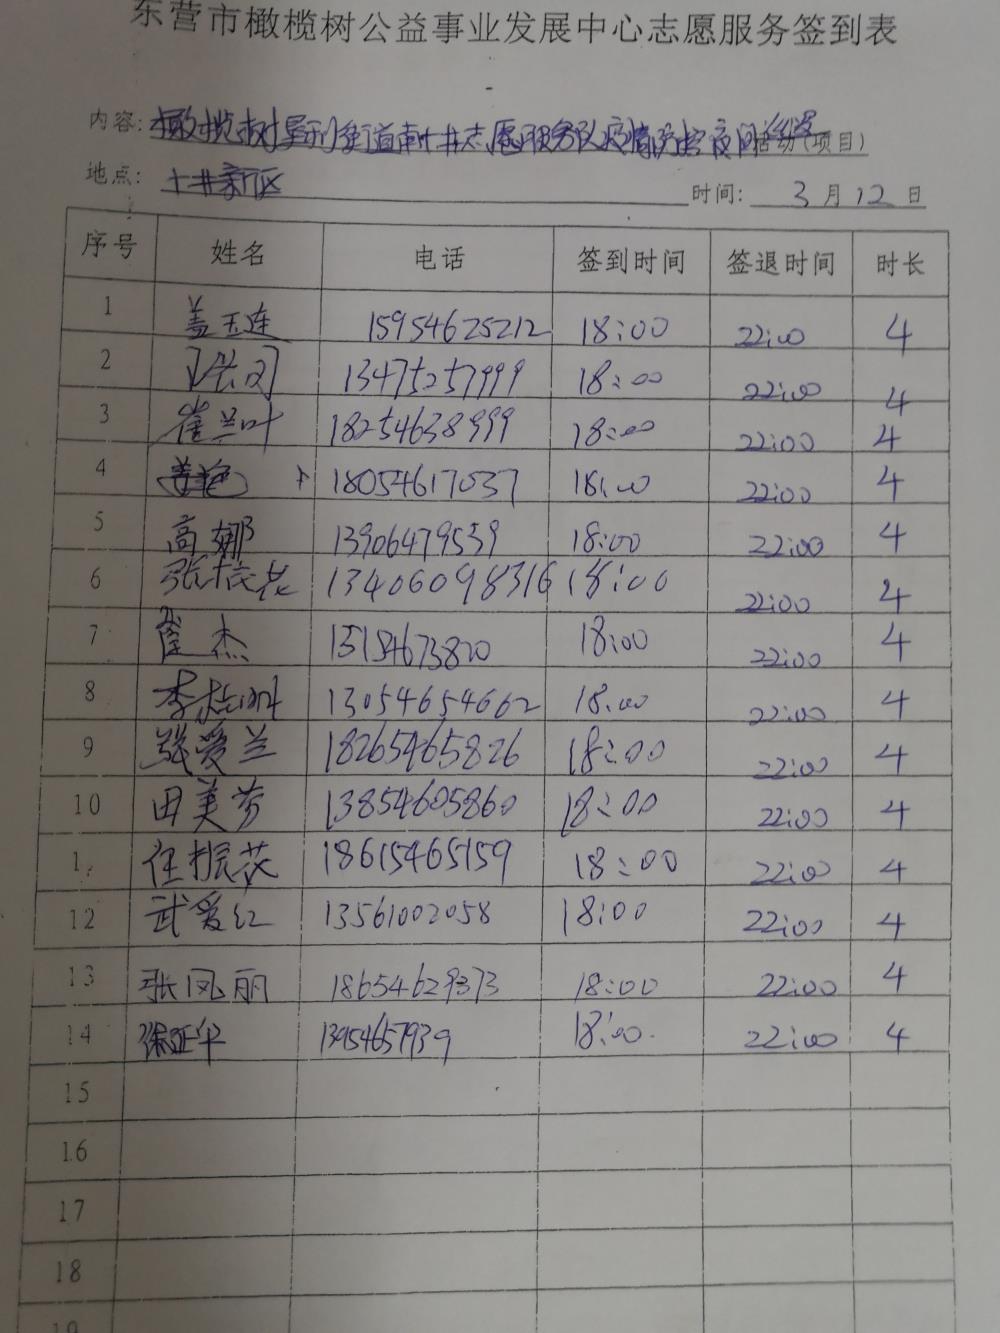 东营市橄榄树公益事业发展中心志愿服务签到表
内容: 橄榄树 街道 志愿服务队疫情防控夜间 活动(项目)
地点: 十井新区 时间: 3月12日
序号 姓名 电话 签到时间 签退时间 时长
1 盖玉连 15954625212 18:00 22:00 4
2 13475257999 18:00 22:00 4
3 崔兰叶 18254638999 18:00 22:00 4
4 18054617037 18:00 22:00 4
5 高娜 13906479539 18:00 22:00 4
6 张桂花 13406098316 18:00 22:00 4
7 崔杰 15154673820 18:00 22:00 4
8 13054654662 18:00 22:00 4
9 张爱兰 18265465826 18:00 22:00 4
10 田美芳 13854605860 18:00 22:00 4
1 任振花 18615465159 18:00 22:00 4
12 武爱红 13561002058 18:00 22:00 4
13 张凤丽 18654629373 18:00 22:00 4
14 13954657939 18:00 22:00 4
15
16
17
18
19